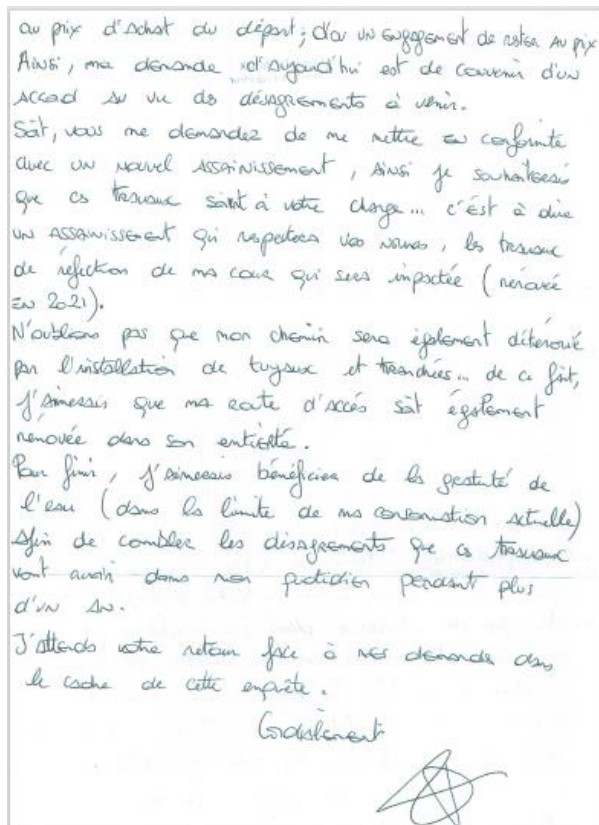 au prix d'achat du départ ; d'où un engagement de rester au prix
Ainsi, ma demande d'aujourd'hui est de convenir d'un
accord au vu des désagréments à venir.
Soit, vous me demandez de me mettre en conformité
avec un nouvel assainissement, ainsi je souhaiterais
que ces travaux soient à votre charge... c'est à dire
un assainissement qui respectera vos normes, les travaux
de réfection de ma cour qui sera impactée (rénovée
en 2021).
N'oublions pas que mon chemin sera également détérioré
par l'installation de tuyaux et tranchées... de ce fait,
j'aimerais que ma route d'accès soit également
rénovée dans son entièreté.
Pour finir, j'aimerais bénéficier de la gratuité de
l'eau (dans la limite de ma consomation actuelle)
afin de combler les désagréments que ces travaux
vont avoir dans mon quotidien pendant plus
d'un an.
J'attends votre retour face à mes demandes dans
le cadre de cette enquête.
Cordialement